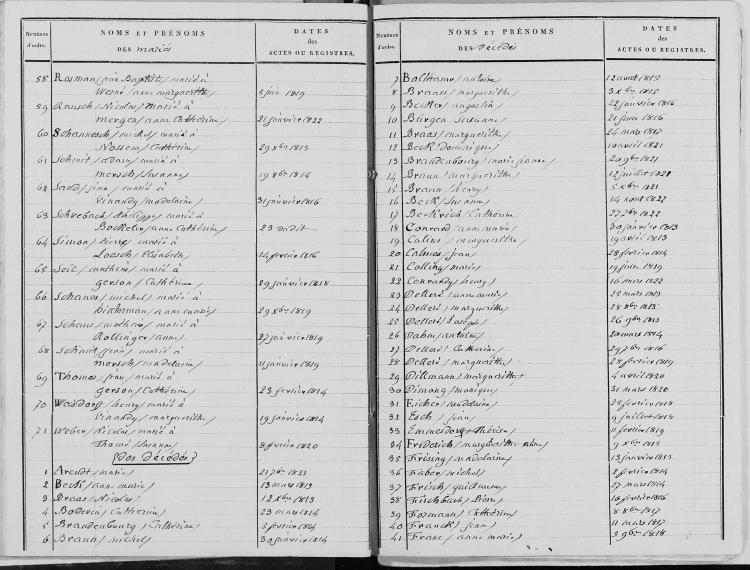 Numéros d'ordre. NOMS ET PRÉNOMS DES mariés DATES des ACTES OU REGISTRES.
58 Rosman /jean Baptiste/ marié à
Werné /anne marguerithe/ 3 juin 1819
59 Rausch /Nicolas/ marié à
mergen /anne Cathérine/ 21 janvier 1822
60 Schannesch /michel/ marié à
Nossem /Cathérine/ 29 xbre 1813
61 Schmit /adam/ marié à
mersch /Susanne/ 19 8bre 1814
62 Sand /jean/ marié à
Pinandy /madelaine/ 31 janvier 1816
63 Schrobach /Philippe/ marié à
Bockeler /anne Cathérine/ 23 dudit
64 Simon /pierre/ marié à
Loesch /Elisabeth/ 14 fevrier 1816
65 Seil /mathias/ marié à
gerson /Cathérine/ 29 janvier 1818
66 Schaus /michel/ marié à
Biderman /anne marie/ 29 xbre 1819
67 Schaus /mathias/ marié à
Rollinger /anne/ 27 janvier 1819
68 Schmit /jean/ marié à
mersch /madelaine/ 11 janvier 1819
69 Thomas /jean/ marié à
gerson /Cathérine/ 23 fevrier 1814
70 /henry/ marié à
Pinandy /marguerithe/ 19 janvier 1814
71 Weber /Nicolas/ marié à
Thomé /Susanne/ 8 fevrier 1820
{Des Décédés}
1 Arendt /marie/ 21 7bre 1821
2 Beck /anne marie/ 13 mars 1813
3 Braas /Nicolas/ 12 xbre 1813
4 Bodevin /Cathérine/ 23 mars 1814
5 Brandenbourg /Cathérine/ 3 fevrier 1814
6 Braun /michel/ 30 janvier 1814
Numéros d'ordre. NOMS ET PRÉNOMS DES Décédés DATES des ACTES OU REGISTRES.
7 Balthasar /antoine/ 12 aout 1815
8 Braas /marguerithe/ 3 xbre 1815
9 Becker /augustin/ 22 janvier 1816
10 Bürger /Susanne/ 21 juin 1816
11 Braas /marguerithe/ 24 mars 1817
12 Beck /Dominique/ 10 avril 1821
13 Brandenbourg /marie jeanne/ 20 9bre 1821
14 Braun /marguerithe/ 12 juillet 1821
15 Braun /henry/ 5 xbre 1821
16 Beck /Susanne/ 14 aout 1822
17 Beckrich /Cathérine/ 27 7bre 1822
18 Conrard /anne marie/ 30 janvier 1813
19 Calins /marguerithe/ 19 avril 1813
20 Calmes /jean/ 28 fevrier 1814
21 Colling /marie/ 19 juin 1819
22 Conrardy /henry/ 16 mars 1822
23 Delleré /anne marie/ 25 mars 1813
24 Delleré /marguerithe/ 28 8bre 1813
25 Delleré /Joseph/ 26 9bre 1813
26 Dahm /antoine/ 20 mars 1814
27 Delleré /Catherine/ 29 7bre 1816
28 Delleré /marguerithe/ 28 fevrier 1819
29 Dillmann /marguerithe/ 4 avril 1820
30 Dimong /monique/ 31 mars 1820
31 Eicher /madelaine/ 25 fevrier 1818
32 Esch /jean/ 9 juillet 1818
33 Emmesdorff /Thérèse/ 11 fevrier 1819
34 Friderich /marguerithe 9 xbre 1813
35 Frising /madelaine/ 13 janvier 1813
36 Faber /michel/ 2 fevrier 1814
37 Frisch /guillaume/ 27 mars 1814
38 Fischbach /Pierre/ 16 fevrier 1816
39 Formann /Cathérine/ 8 8bre 1817
40 Franck /jean/ 11 mars 1817
41 Franc /anne marie/ 3 9bre 1818